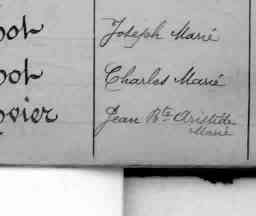 oot Joseph Marie
oot Charles Marie
ovier Jean Bte Aristide
Marie